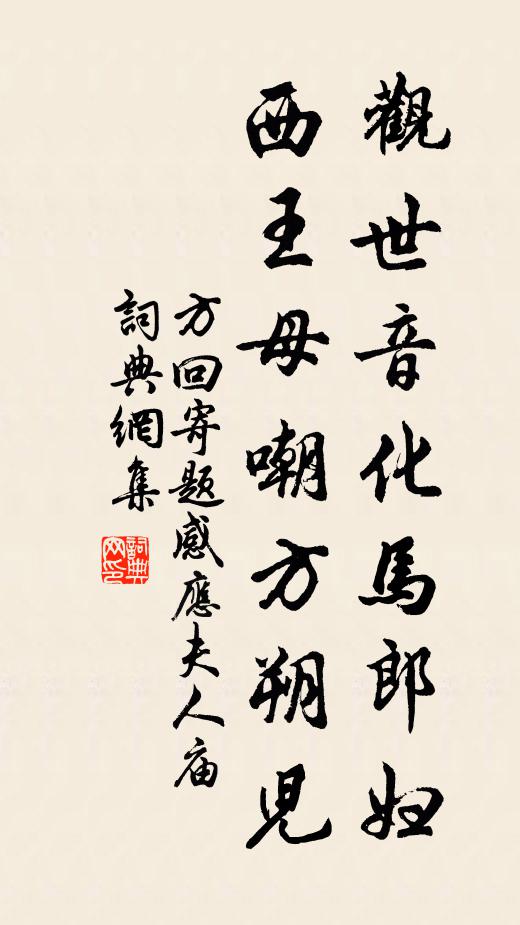 觀世音化馬郎婦
西王母嘲方朔兒
方回寄題感應夫人庙
詞典網集
詞典网印